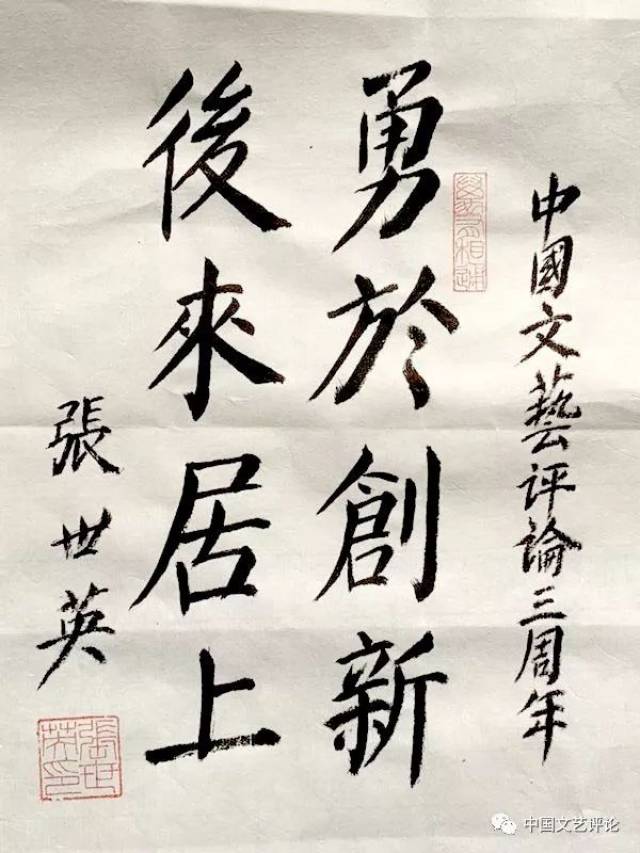 中國文藝评論三周年
勇於創新
後來居上
張世英
張世英印
中国文艺评论